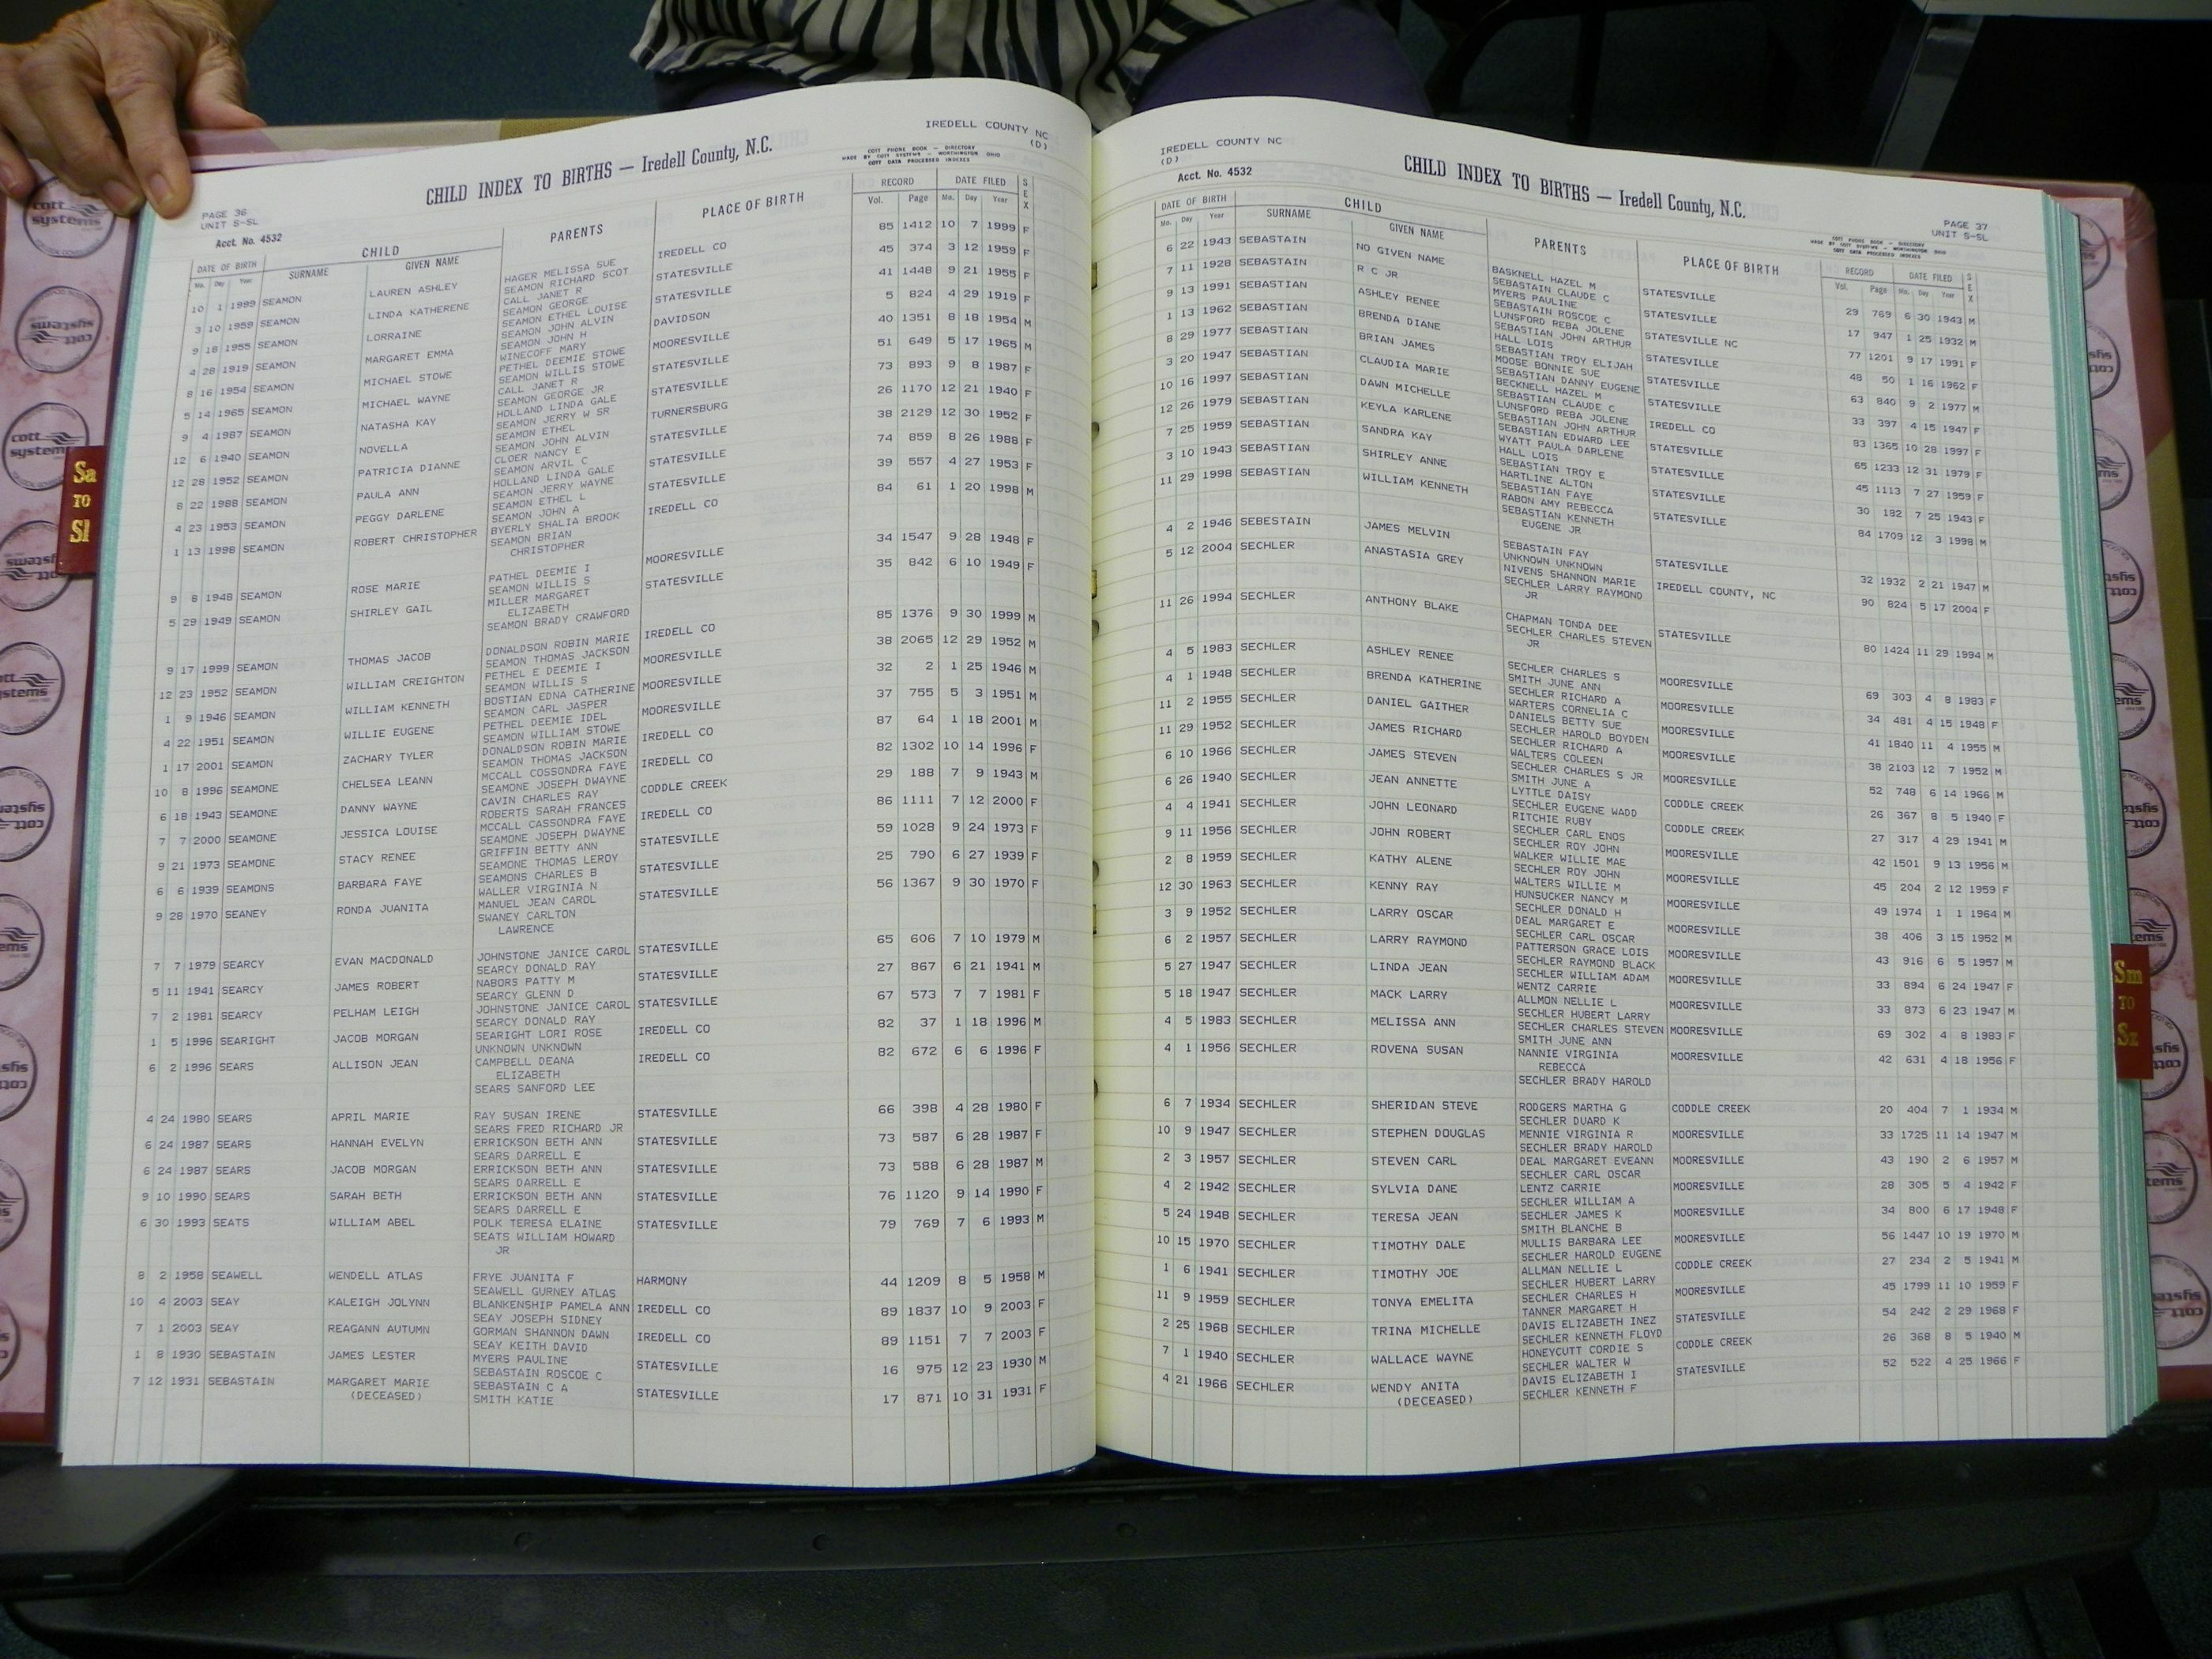 IREDELL COUNTY NC
(D)
CHILD INDEX TO BIRTHS — Iredell County, N.C.
COTT PHONE BOOK — DIRECTORY
MADE BY COTT SYSTEMS — WORTHINGTON OHIO
COTT DATA PROCESSED INDEXES
PAGE 36
UNIT S-SL
Acct. No. 4532
DATE OF BIRTH CHILD PARENTS PLACE OF BIRTH RECORD DATE FILED SEX
Mo. Day Year SURNAME GIVEN NAME Vol. Page Mo. Day Year
10 1 1999 SEAMON LAUREN ASHLEY HAGER MELISSA SUE IREDELL CO 85 1412 10 7 1999 F
SEAMON RICHARD SCOT
3 10 1959 SEAMON LINDA KATHERENE CALL JANET R STATESVILLE 45 374 3 12 1959 F
SEAMON GEORGE
9 18 1955 SEAMON LORRAINE SEAMON ETHEL LOUISE STATESVILLE 41 1448 9 21 1955 F
SEAMON JOHN ALVIN
4 28 1919 SEAMON MARGARET EMMA SEAMON JOHN H STATESVILLE 5 824 4 29 1919 F
WINECOFF MARY
8 16 1954 SEAMON MICHAEL STOWE PETHEL DEEMIE STOWE DAVIDSON 40 1351 8 18 1954 M
SEAMON WILLIS STOWE
5 14 1965 SEAMON MICHAEL WAYNE CALL JANET R MOORESVILLE 51 649 5 17 1965 M
SEAMON GEORGE JR
9 4 1987 SEAMON NATASHA KAY HOLLAND LINDA GALE STATESVILLE 73 893 9 8 1987 F
SEAMON JERRY W SR
12 6 1940 SEAMON NOVELLA SEAMON ETHEL STATESVILLE 26 1170 12 21 1940 F
SEAMON JOHN ALVIN
12 28 1952 SEAMON PATRICIA DIANNE CLOER NANCY E TURNERSBURG 38 2129 12 30 1952 F
SEAMON ARVIL C
8 22 1988 SEAMON PAULA ANN HOLLAND LINDA GALE STATESVILLE 74 859 8 26 1988 F
SEAMON JERRY WAYNE
4 23 1953 SEAMON PEGGY DARLENE SEAMON ETHEL L STATESVILLE 39 557 4 27 1953 F
SEAMON JOHN A
1 13 1998 SEAMON ROBERT CHRISTOPHER BYERLY SHALIA BROOK STATESVILLE 84 61 1 20 1998 M
SEAMON BRIAN IREDELL CO
CHRISTOPHER
9 8 1948 SEAMON ROSE MARIE PATHEL DEEMIE I MOORESVILLE 34 1547 9 28 1948 F
SEAMON WILLIS S
5 29 1949 SEAMON SHIRLEY GAIL MILLER MARGARET STATESVILLE 35 842 6 10 1949 F
ELIZABETH
SEAMON BRADY CRAWFORD
9 17 1999 SEAMON THOMAS JACOB DONALDSON ROBIN MARIE IREDELL CO 85 1376 9 30 1999 M
SEAMON THOMAS JACKSON
12 23 1952 SEAMON WILLIAM CREIGHTON PETHEL E DEEMIE I MOORESVILLE 38 2065 12 29 1952 M
SEAMON WILLIS S
1 9 1946 SEAMON WILLIAM KENNETH BOSTIAN EDNA CATHERINE MOORESVILLE 32 2 1 25 1946 M
SEAMON CARL JASPER
4 22 1951 SEAMON WILLIE EUGENE PETHEL DEEMIE IDEL MOORESVILLE 37 755 5 3 1951 M
SEAMON WILLIAM STOWE
1 17 2001 SEAMON ZACHARY TYLER DONALDSON ROBIN MARIE IREDELL CO 87 64 1 18 2001 M
SEAMON THOMAS JACKSON
10 8 1996 SEAMONE CHELSEA LEANN MCCALL COSSONDRA FAYE IREDELL CO 82 1302 10 14 1996 F
SEAMONE JOSEPH DWAYNE
6 18 1943 SEAMONE DANNY WAYNE CAVIN CHARLES RAY CODDLE CREEK 29 188 7 9 1943 M
ROBERTS SARAH FRANCES
7 7 2000 SEAMONE JESSICA LOUISE MCCALL CASSONDRA FAYE IREDELL CO 86 1111 7 12 2000 F
SEAMONE JOSEPH DWAYNE
9 21 1973 SEAMONE STACY RENEE GRIFFIN BETTY ANN STATESVILLE 59 1028 9 24 1973 F
SEAMONE THOMAS LEROY
6 6 1939 SEAMONS BARBARA FAYE SEAMONS CHARLES B STATESVILLE 25 790 6 27 1939 F
WALLER VIRGINIA N
9 28 1970 SEANEY RONDA JUANITA MANUEL JEAN CAROL STATESVILLE 56 1367 9 30 1970 F
SWANEY CARLTON
LAWRENCE
7 7 1979 SEARCY EVAN MACDONALD JOHNSTONE JANICE CAROL STATESVILLE 65 606 7 10 1979 M
SEARCY DONALD RAY
5 11 1941 SEARCY JAMES ROBERT NABORS PATTY M STATESVILLE 27 867 6 21 1941 M
SEARCY GLENN D
7 2 1981 SEARCY PELHAM LEIGH JOHNSTONE JANICE CAROL STATESVILLE 67 573 7 7 1981 F
SEARCY DONALD RAY
1 5 1996 SEARIGHT JACOB MORGAN SEARIGHT LORI ROSE IREDELL CO 82 37 1 18 1996 M
UNKNOWN UNKNOWN
6 2 1996 SEARS ALLISON JEAN CAMPBELL DEANA IREDELL CO 82 672 6 6 1996 F
ELIZABETH
SEARS SANFORD LEE
4 24 1980 SEARS APRIL MARIE RAY SUSAN IRENE STATESVILLE 66 398 4 28 1980 F
SEARS FRED RICHARD JR
6 24 1987 SEARS HANNAH EVELYN ERRICKSON BETH ANN STATESVILLE 73 587 6 28 1987 F
SEARS DARRELL E
6 24 1987 SEARS JACOB MORGAN ERRICKSON BETH ANN STATESVILLE 73 588 6 28 1987 M
SEARS DARRELL E
9 10 1990 SEARS SARAH BETH ERRICKSON BETH ANN STATESVILLE 76 1120 9 14 1990 F
SEARS DARRELL E
6 30 1993 SEATS WILLIAM ABEL POLK TERESA ELAINE STATESVILLE 79 769 7 6 1993 M
SEATS WILLIAM HOWARD
JR
8 2 1958 SEAWELL WENDELL ATLAS FRYE JUANITA F HARMONY 44 1209 8 5 1958 M
SEAWELL GURNEY ATLAS
10 4 2003 SEAY KALEIGH JOLYNN BLANKENSHIP PAMELA ANN IREDELL CO 89 1837 10 9 2003 F
SEAY JOSEPH SIDNEY
7 1 2003 SEAY REAGANN AUTUMN GORMAN SHANNON DAWN IREDELL CO 89 1151 7 7 2003 F
SEAY KEITH DAVID
1 8 1930 SEBASTAIN JAMES LESTER MYERS PAULINE STATESVILLE 16 975 12 23 1930 M
SEBASTAIN ROSCOE C
7 12 1931 SEBASTAIN MARGARET MARIE SEBASTAIN C A STATESVILLE 17 871 10 31 1931 F
(DECEASED) SMITH KATIE
IREDELL COUNTY NC
(D)
Acct. No. 4532
CHILD INDEX TO BIRTHS — Iredell County, N.C.
PAGE 37
UNIT S-SL
COTT PHONE BOOK — DIRECTORY
MADE BY COTT SYSTEMS — WORTHINGTON OHIO
COTT DATA PROCESSED INDEXES
DATE OF BIRTH CHILD PARENTS PLACE OF BIRTH RECORD DATE FILED SEX
Mo. Day Year SURNAME GIVEN NAME Vol. Page Mo. Day Year
6 22 1943 SEBASTAIN NO GIVEN NAME BASKNELL HAZEL M STATESVILLE 29 769 6 30 1943 M
SEBASTAIN CLAUDE C
7 11 1928 SEBASTAIN R C JR MYERS PAULINE STATESVILLE 17 947 1 25 1932 M
SEBASTAIN ROSCOE C
9 13 1991 SEBASTIAN ASHLEY RENEE LUNSFORD REBA JOLENE STATESVILLE NC 77 1201 9 17 1991 F
SEBASTIAN JOHN ARTHUR
1 13 1962 SEBASTIAN BRENDA DIANE HALL LOIS STATESVILLE 48 50 1 16 1962 F
SEBASTIAN TROY ELIJAH
8 29 1977 SEBASTIAN BRIAN JAMES MOOSE BONNIE SUE STATESVILLE 63 840 9 2 1977 M
SEBASTIAN DANNY EUGENE
3 20 1947 SEBASTIAN CLAUDIA MARIE BECKNELL HAZEL M STATESVILLE 33 397 4 15 1947 F
SEBASTIAN CLAUDE C
10 16 1997 SEBASTIAN DAWN MICHELLE LUNSFORD REBA JOLENE IREDELL CO 83 1365 10 28 1997 F
SEBASTIAN JOHN ARTHUR
12 26 1979 SEBASTIAN KEYLA KARLENE SEBASTIAN EDWARD LEE STATESVILLE 65 1233 12 31 1979 F
WYATT PAULA DARLENE
7 25 1959 SEBASTIAN SANDRA KAY HALL LOIS STATESVILLE 45 1113 7 27 1959 F
SEBASTIAN TROY E
3 10 1943 SEBASTIAN SHIRLEY ANNE HARTLINE ALTON STATESVILLE 30 182 7 25 1943 F
SEBASTIAN FAYE
11 29 1998 SEBASTIAN WILLIAM KENNETH RABON AMY REBECCA STATESVILLE 84 1709 12 3 1998 M
SEBASTIAN KENNETH
EUGENE JR
4 2 1946 SEBESTAIN JAMES MELVIN SEBASTAIN FAY STATESVILLE 32 1932 2 21 1947 M
UNKNOWN UNKNOWN
5 12 2004 SECHLER ANASTASIA GREY NIVENS SHANNON MARIE IREDELL COUNTY, NC 90 824 5 17 2004 F
SECHLER LARRY RAYMOND
JR
11 26 1994 SECHLER ANTHONY BLAKE CHAPMAN TONDA DEE STATESVILLE 80 1424 11 29 1994 M
SECHLER CHARLES STEVEN
JR
4 5 1983 SECHLER ASHLEY RENEE SECHLER CHARLES S MOORESVILLE 69 303 4 8 1983 F
SMITH JUNE ANN
4 1 1948 SECHLER BRENDA KATHERINE SECHLER RICHARD A MOORESVILLE 34 481 4 15 1948 F
WARTERS CORNELIA C
11 2 1955 SECHLER DANIEL GAITHER DANIELS BETTY SUE MOORESVILLE 41 1840 11 4 1955 M
SECHLER HAROLD BOYDEN
11 29 1952 SECHLER JAMES RICHARD SECHLER RICHARD A MOORESVILLE 38 2103 12 7 1952 M
WALTERS COLEEN
6 10 1966 SECHLER JAMES STEVEN SECHLER CHARLES S JR MOORESVILLE 52 748 6 14 1966 M
SMITH JUNE A
6 26 1940 SECHLER JEAN ANNETTE LYTTLE DAISY CODDLE CREEK 26 367 8 5 1940 F
SECHLER EUGENE WADD
4 4 1941 SECHLER JOHN LEONARD RITCHIE RUBY CODDLE CREEK 27 317 4 29 1941 M
SECHLER CARL ENOS
9 11 1956 SECHLER JOHN ROBERT SECHLER ROY JOHN MOORESVILLE 42 1501 9 13 1956 M
WALKER WILLIE MAE
2 8 1959 SECHLER KATHY ALENE SECHLER ROY JOHN MOORESVILLE 45 204 2 12 1959 F
WALTERS WILLIE M
12 30 1963 SECHLER KENNY RAY HUNSUCKER NANCY M MOORESVILLE 49 1974 1 1 1964 M
SECHLER DONALD H
3 9 1952 SECHLER LARRY OSCAR DEAL MARGARET E MOORESVILLE 38 406 3 15 1952 M
SECHLER CARL OSCAR
6 2 1957 SECHLER LARRY RAYMOND PATTERSON GRACE LOIS MOORESVILLE 43 916 6 5 1957 M
SECHLER RAYMOND BLACK
5 27 1947 SECHLER LINDA JEAN SECHLER WILLIAM ADAM MOORESVILLE 33 894 6 24 1947 F
WENTZ CARRIE
5 18 1947 SECHLER MACK LARRY ALLMON NELLIE L MOORESVILLE 33 873 6 23 1947 M
SECHLER HUBERT LARRY
4 5 1983 SECHLER MELISSA ANN SECHLER CHARLES STEVEN MOORESVILLE 69 302 4 8 1983 F
SMITH JUNE ANN
4 1 1956 SECHLER ROVENA SUSAN NANNIE VIRGINIA MOORESVILLE 42 631 4 18 1956 F
REBECCA
SECHLER BRADY HAROLD
6 7 1934 SECHLER SHERIDAN STEVE RODGERS MARTHA G CODDLE CREEK 20 404 7 1 1934 M
SECHLER DUARD K
10 9 1947 SECHLER STEPHEN DOUGLAS MENNIE VIRGINIA R MOORESVILLE 33 1725 11 14 1947 M
SECHLER BRADY HAROLD
2 3 1957 SECHLER STEVEN CARL DEAL MARGARET EVEANN MOORESVILLE 43 190 2 6 1957 M
SECHLER CARL OSCAR
4 2 1942 SECHLER SYLVIA DANE LENTZ CARRIE MOORESVILLE 28 305 5 4 1942 F
SECHLER WILLIAM A
5 24 1948 SECHLER TERESA JEAN SECHLER JAMES K MOORESVILLE 34 800 6 17 1948 F
SMITH BLANCHE B
10 15 1970 SECHLER TIMOTHY DALE MULLIS BARBARA LEE MOORESVILLE 56 1447 10 19 1970 M
SECHLER HAROLD EUGENE
1 6 1941 SECHLER TIMOTHY JOE ALLMAN NELLIE L CODDLE CREEK 27 234 2 5 1941 M
SECHLER HUBERT LARRY
11 9 1959 SECHLER TONYA EMELITA SECHLER CHARLES H MOORESVILLE 45 1799 11 10 1959 F
TANNER MARGARET H
2 25 1968 SECHLER TRINA MICHELLE DAVIS ELIZABETH INEZ STATESVILLE 54 242 2 29 1968 F
SECHLER KENNETH FLOYD
7 1 1940 SECHLER WALLACE WAYNE HONEYCUTT CORDIE S CODDLE CREEK 26 368 8 5 1940 M
SECHLER WALTER W
4 21 1966 SECHLER WENDY ANITA DAVIS ELIZABETH I STATESVILLE 52 522 4 25 1966 F
(DECEASED) SECHLER KENNETH F
Sa
TO
Sl
Sm
TO
Sz
cott
systems